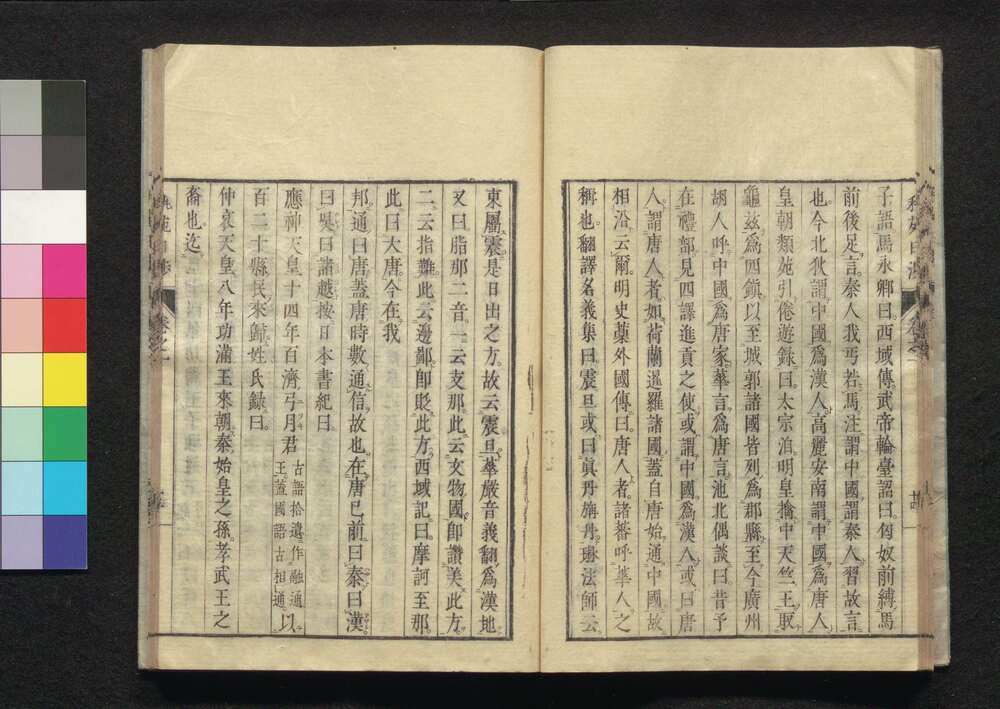 子語馬永卿曰西域傳武帝輪臺詔曰匈奴前縛馬
前後足言秦人我丐若馬注謂中國謂秦人習故言
也今北狄謂中國爲漢人高麗安南謂中國爲唐人
皇朝類苑引倦遊錄曰太宗洎明皇擒中天竺王取
龜玆爲四鎭以至城郭諸國皆列爲郡縣至今廣州
胡人呼中國爲唐家華言爲唐言池北偶談曰昔予
在禮部見四譯進貢之使或謂中國爲漢人或曰唐
人謂唐人者如荷蘭暹羅諸國蓋自唐始通中國故
相沿云爾明史藁外國傳曰唐人者諸蕃呼華人之
稱也翻譯名義集曰震旦或曰眞丹旃丹琳法師云
東屬震是日出之方故云震旦華嚴音義翻爲漢地
又曰脂那二音一云支那此云文物國卽讚美此方
二云指難此云邊鄙卽貶此方西域記曰摩訶至那
此曰大唐今在我
邦通曰唐蓋唐時數通信故也在唐已前曰秦曰漢
曰吳曰諸越按日本書紀曰
應神天皇十四年百濟弓月君
古語拾遺作融通
王蓋國語古相通
以
百二十縣民來歸姓氏錄曰
仲哀天皇八年功滿王來朝秦始皇之孫孝武王之
裔也迄
卷之一